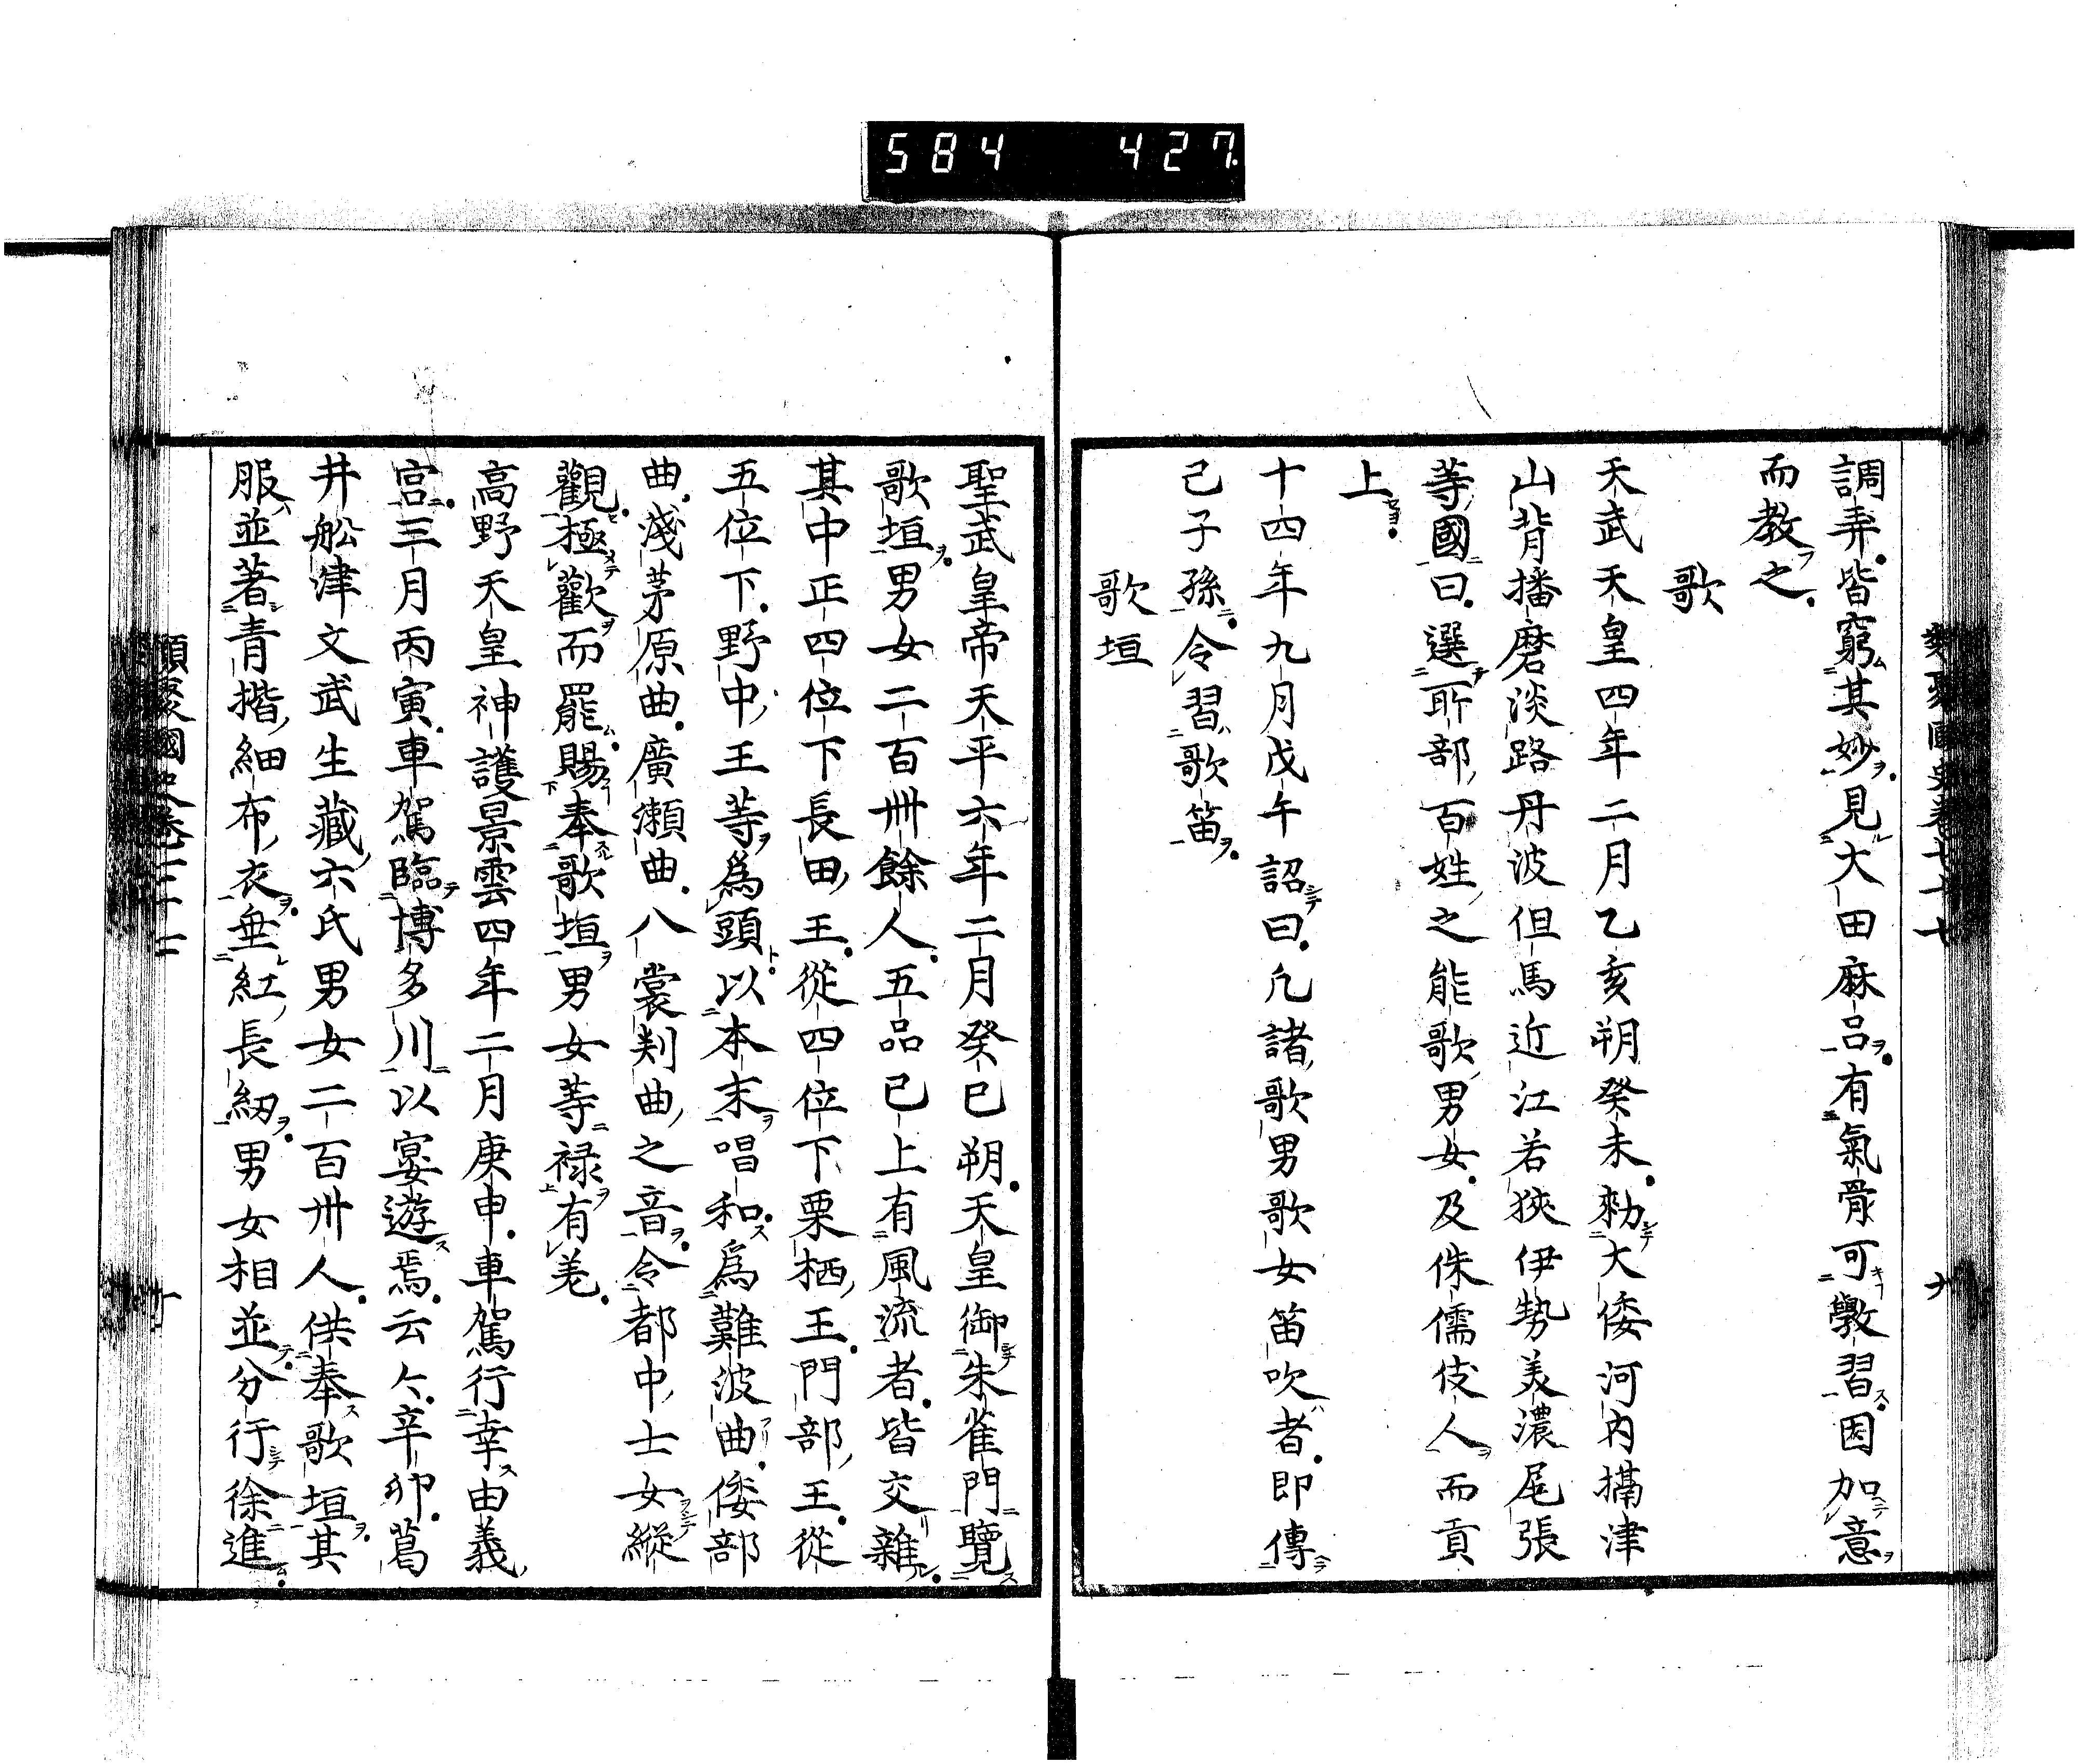 584 427
調弄皆窮其妙見大田麻呂有氣骨可斆習因加意
而教之
歌
天武天皇四年二月乙亥朔癸未勑大倭河内攝津
山背播磨淡路丹波但馬近江若狹伊勢美濃尾張
等國曰選所部百姓之能歌男女及侏儒伎人而貢
上
十四年九月戊午詔曰凡諸歌男歌女笛吹者即傳
己子孫令習歌笛
歌垣
聖武皇帝天平六年二月癸巳朔天皇御朱雀門覽
歌垣男女二百卌餘人五品已上有風流者皆交雜
其中正四位下長田王從四位下栗栖王門部王從
五位下野中王等爲頭以本末唱和爲難波曲倭部
曲淺茅原曲廣瀬曲八裳刾曲之音令都中士女縱
觀極歡而罷賜奉歌垣男女等禄有差
高野天皇神護景雲四年二月庚申車駕行幸由義
宮三月丙寅車駕臨博多川以宴遊焉云々辛卯葛
井舩津文武生藏六氏男女二百卅人供奉歌垣其
服並著青揩細布衣垂紅長紉男女相並分行徐進